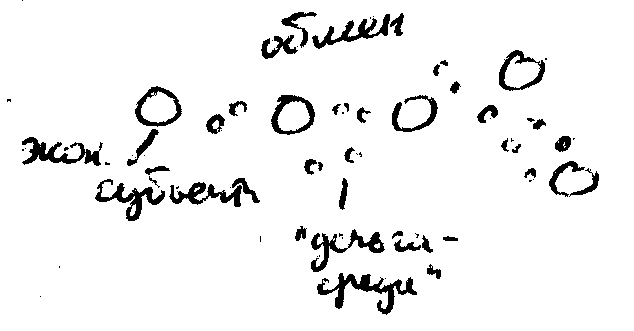 обмен
экон.
субъект
"деньга-
среди"